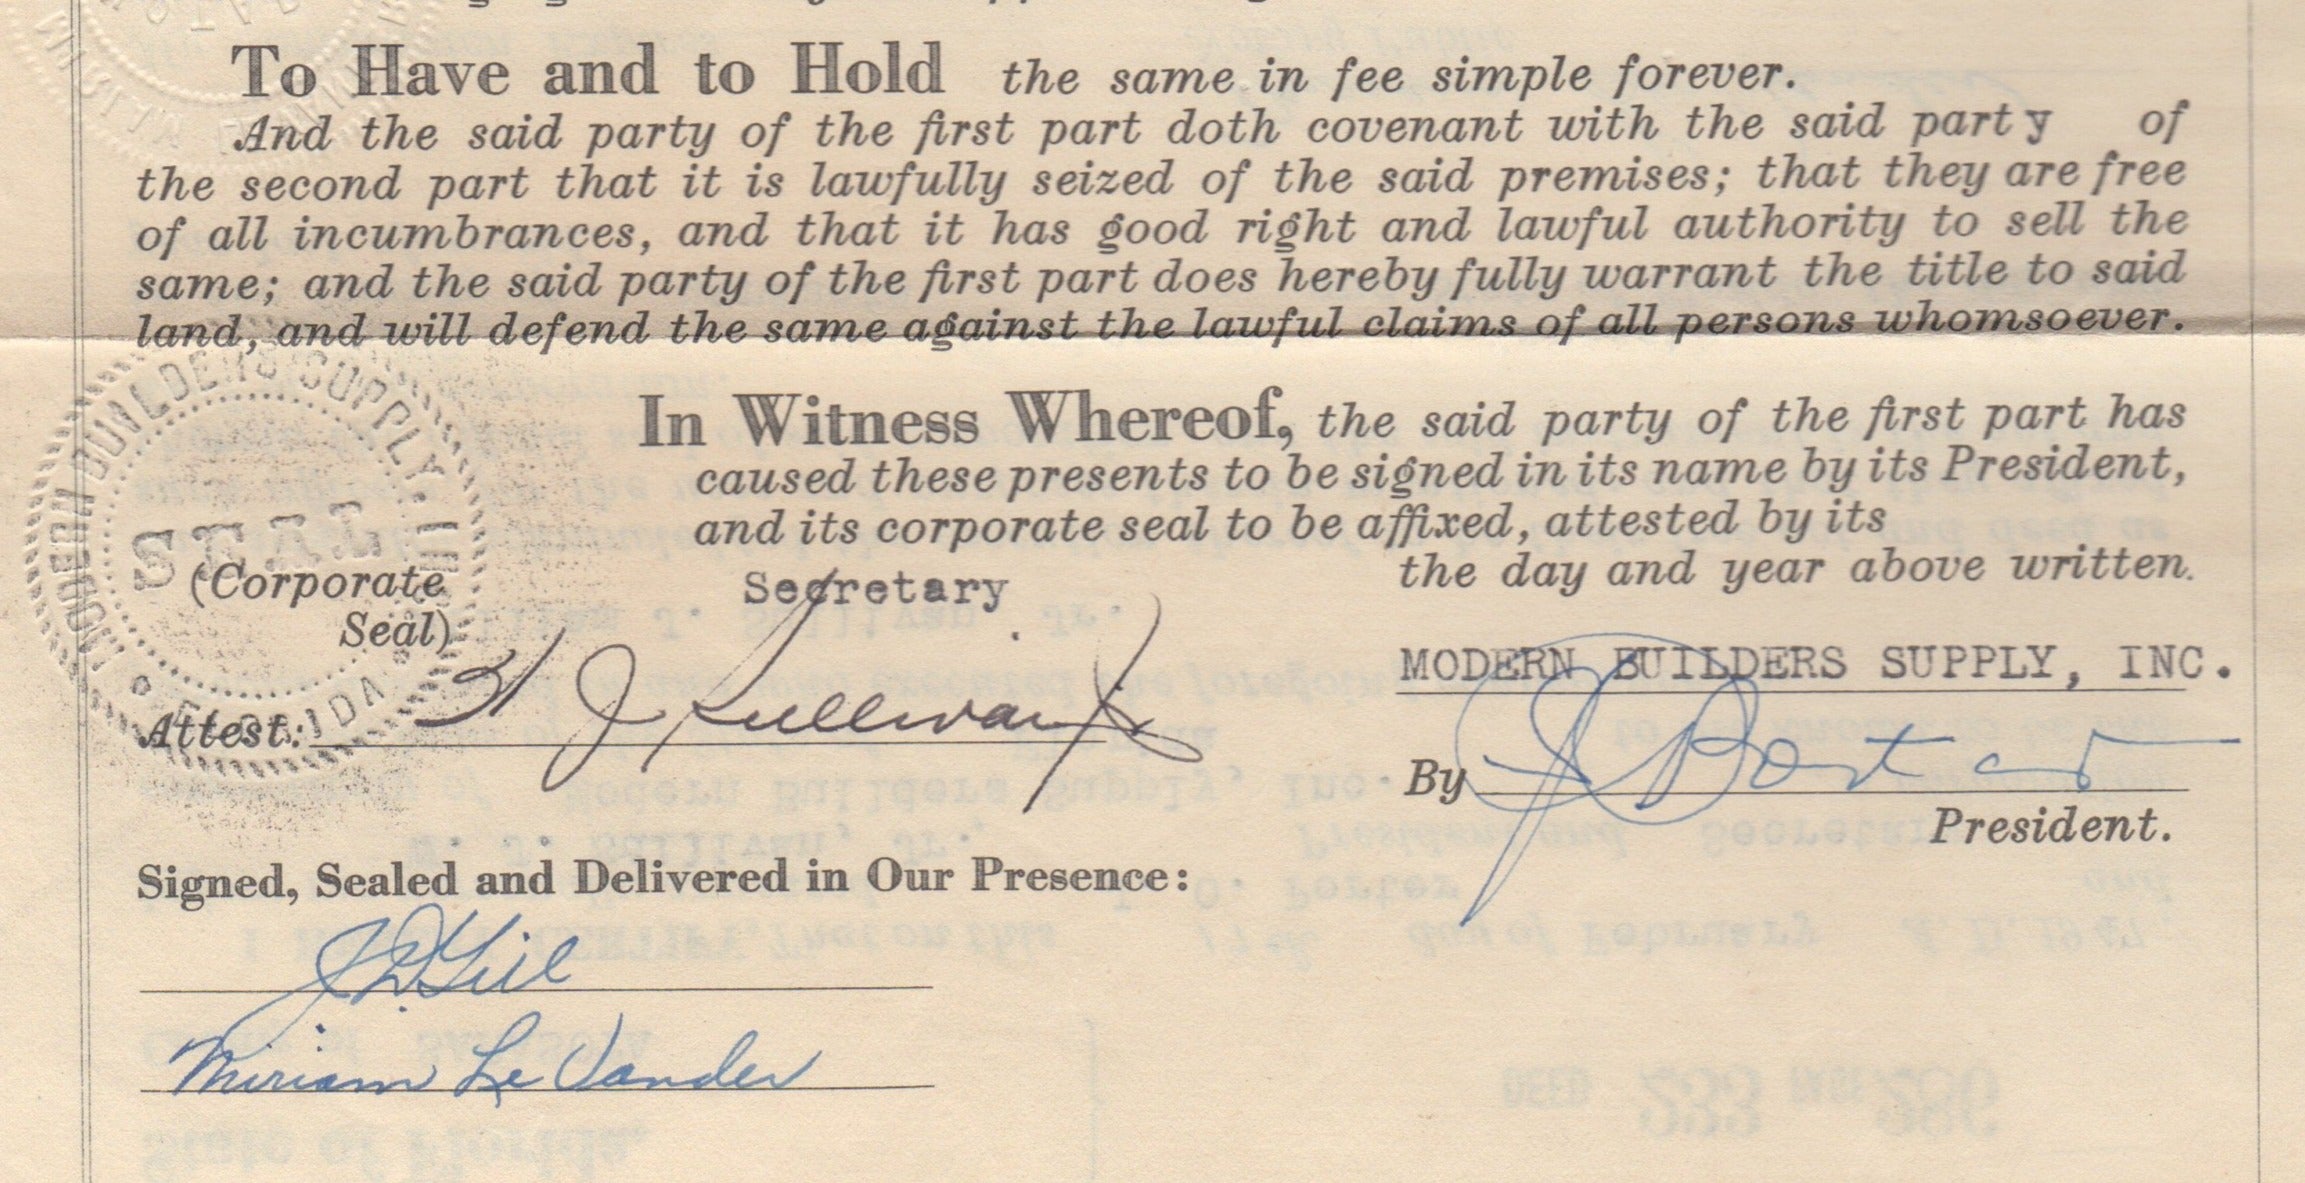 To Have and to Hold the same in fee simple forever.
And the said party of the first part doth covenant with the said party of
the second part that it is lawfully seized of the said premises; that they are free
of all incumbrances, and that it has good right and lawful authority to sell the
same; and the said party of the first part does hereby fully warrant the title to said
land, and will defend the same against the lawful claims of all persons whomsoever.
In Witness Whereof, the said party of the first part has
caused these presents to be signed in its name by its President,
and its corporate seal to be affixed, attested by its
Secretary the day and year above written.
MODERN BUILDERS SUPPLY, INC.
FLORIDA
SEAL
(Corporate
Seal)
MODERN BUILDERS SUPPLY, INC.
Attest: J Sullivan Jr
By Porter
President.
Signed, Sealed and Delivered in Our Presence:
J D Gill
Miriam Le Vander